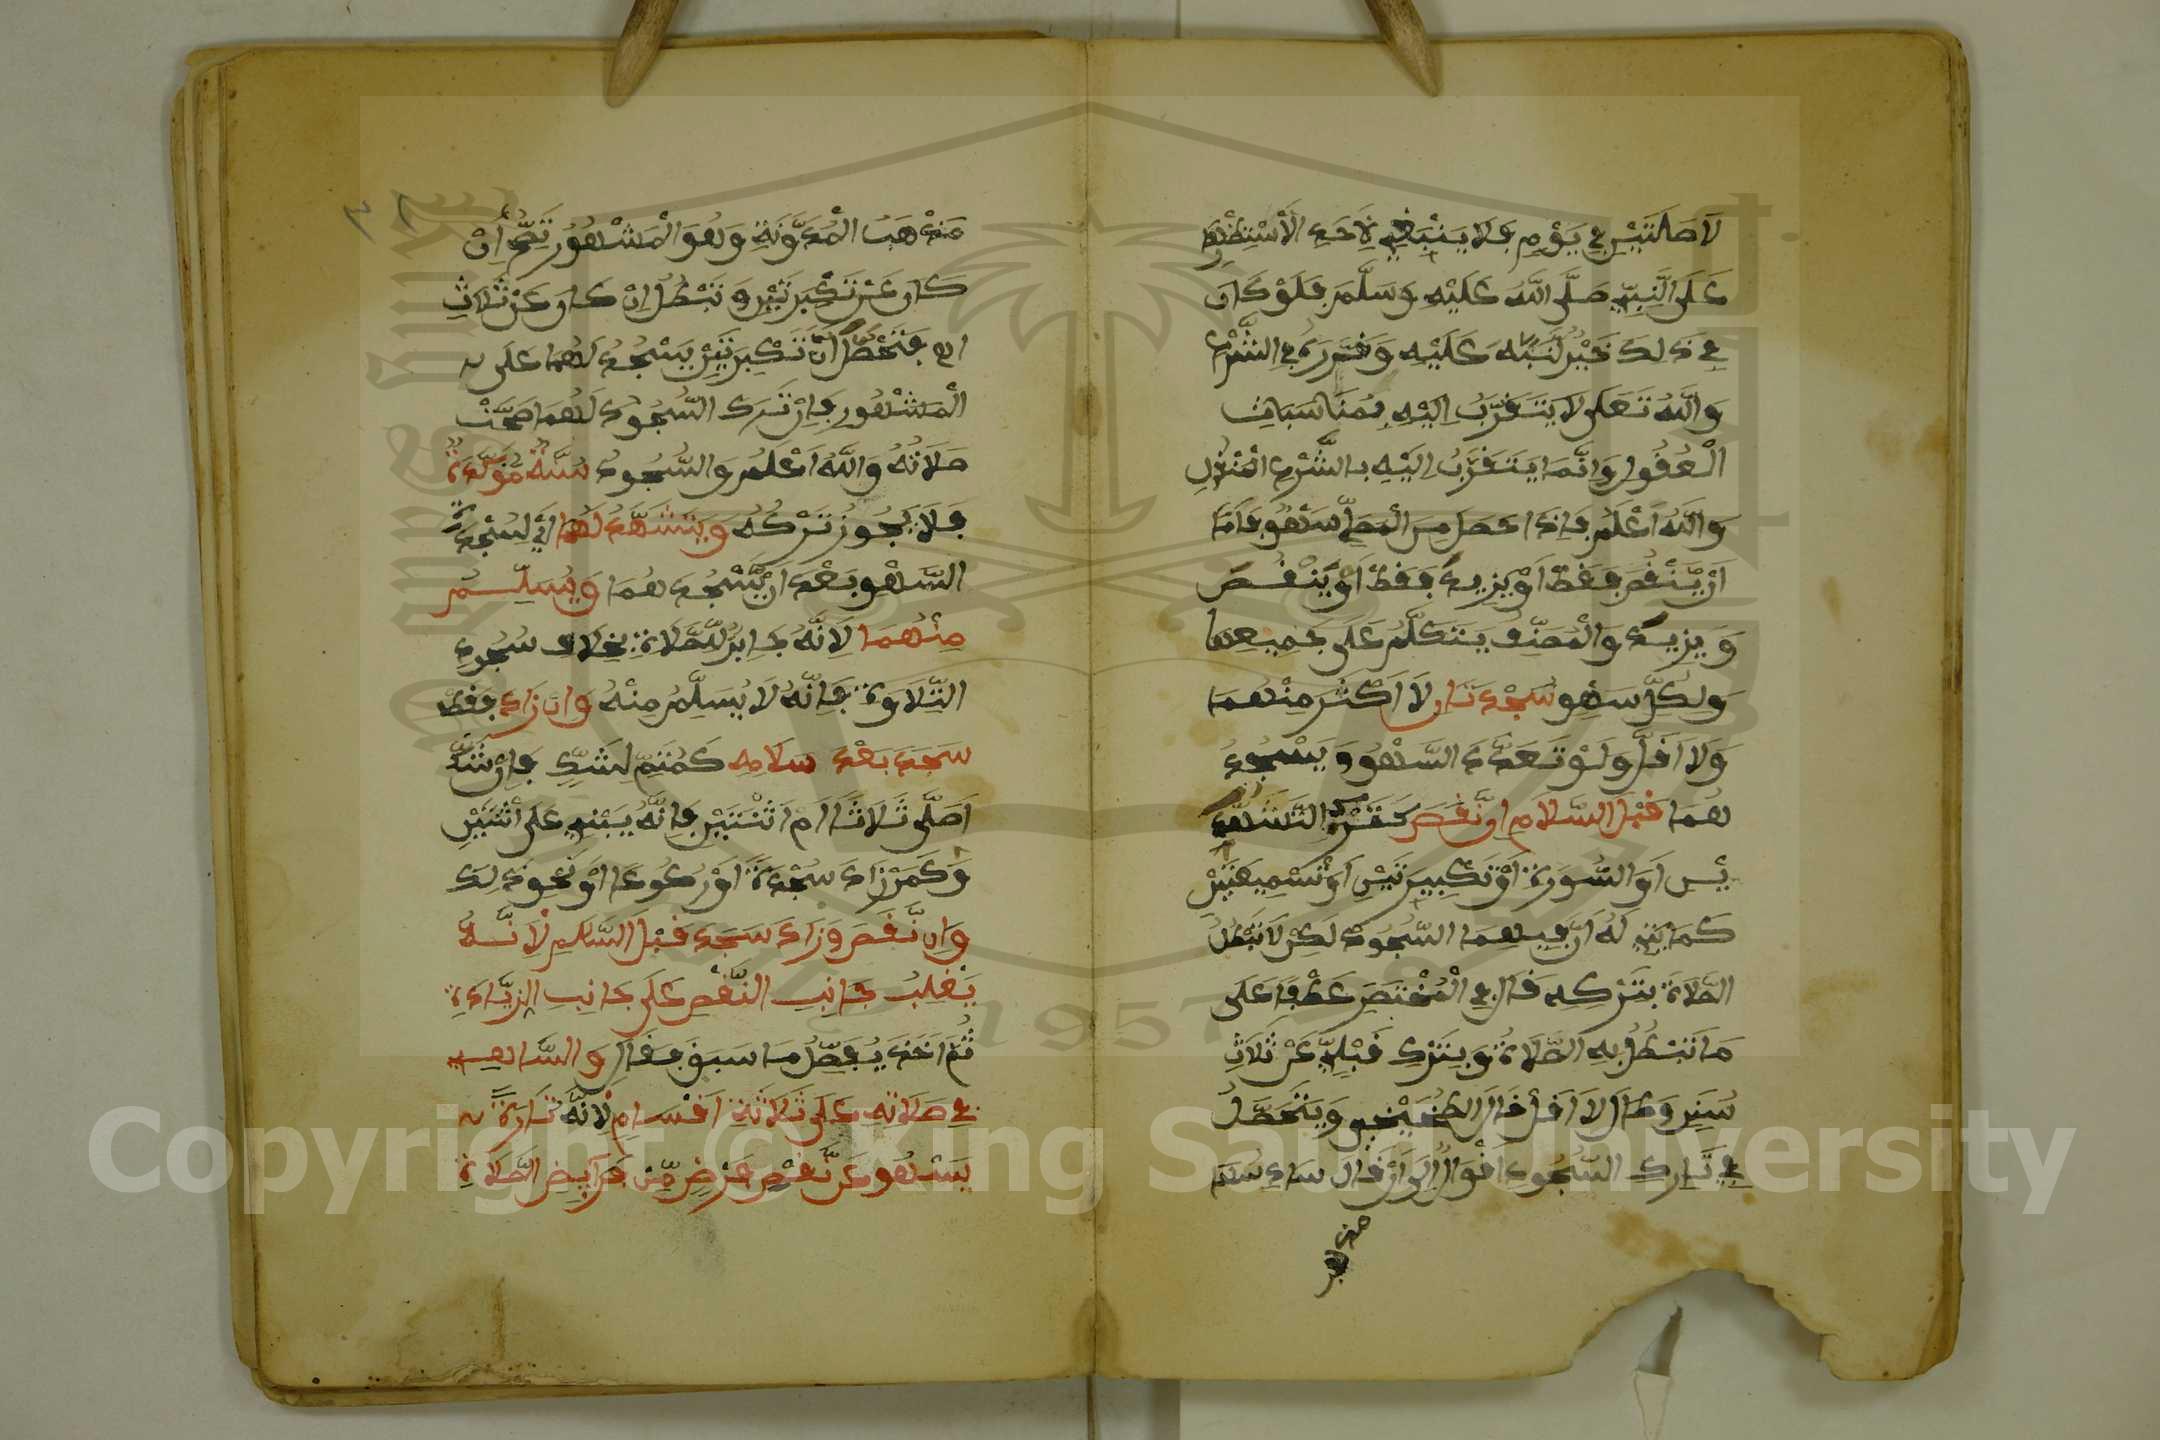 لَا صَلَتَيْنِ فِي يَوْمٍ فَلَا يَنْبَغِي لِأَحَدِ الْاسْتِظْهَارِ
عَلَى النَّبِيِّ صَلَّى اللَّهُ عَلَيْهِ وَسَلَّمَ فَلَوْ كَانَ
فِي ذَلِكَ خَيْرٌ لَنَبَّهَ عَلَيْهِ وَقَرَّرَهُ فِي الشَّرْعِ
وَاللَّهُ تَعَلَى لَا يَتَقَرَّبُ إِلَيْهِ بِمُنَاسَبَاتِ
الْعُقُولِ وَإِنَّمَا يَتَقَرَّبُ إِلَيْهِ بِالشَّرْعِ الْمَنْقُولِ
وَاللَّهُ أَعْلَمُ فَإِذَا حَصَلَ مِنَ الْمُصَلِّي سَهْوٌ فَإِمَّا
أَنْ يَّنْقُصَ فَقَطْ أَوْ يَزِيدَ فَقَطْ أَوْ يَنْقُصَ
وَيَزِيدَ وَالْمُصَنِّفُ يَتَكَلَّمُ عَلَى جَمِيعِهَا
وَلِكُلِّ سَهْوٍ سَجْدَتَانِ لَا أَكْثَرَ مِنْهُمَا
وَلَا أَقَلَّ وَلَوْ تَعَدَّدَ السَّهْوُ وَيَسْجُدُ
هُمَا قَبْلَ السَّلَامِ إِنْ نَّقَصَ كَتَرْكِ التَّشَهُّدَ
يْنِ أَوِ السُّورَةِ أَوْ تَكْبِيرَتَيْنِ أَوْ تَسْمِيعَتَيْنِ
كَمَا يَتِمُّ لَهُ أَنَّ فِيهِمَا السُّجُودَ لَكِنْ لَا تَبْطُلُ
الصَّلَاةُ بِتَرْكِهِ قَالَ فِي الْمُخْتَصَرِ عَطْفًا عَلَى
مَا تَبْطُلُ بِهِ الصَّلَاةُ وَبِتَرْكِ قَبْلِيٍّ عَنْ ثَلَاثِ
سُنَنٍ وَطَالَ لَا أَقَلَّ قَالَ الطُّخَيْخِي وَيَتَحَصَّلُ
فِي تَارِكِ السُّجُودِ أَقْوَالٌ إِلَى أَنْ قَالَ سَادِسُهَا
مَذْهَبُ الْمُدَوَّنَةِ وَهُوَ الْمَشْهُورُ تَصِحُّ إِنْ
كَانَ عَنْ تَكْبِيرَتَيْنِ وَتَبْطُلُ إِنْ كَانَ عَنْ ثَلَاثِ
فَتَحَصَّلَ أَنَّ تَكْبِيرَتَيْنِ يَسْجُدُ لَهُمَا عَلَى
الْمَشْهُورِ فَإِنْ تَرَكَ السُّجُودَ لَهُمَا صَحَّتْ
صَلَاتُهُ وَاللَّهُ أَعْلَمُ وَالسُّجُودُ سُنَّةٌ مُؤَكَّدَةٌ
فَلَا يَجُوزُ تَرْكُهُ وَيَتَشَهَّدُ لَهُمَا أَيْ لِسَجْدَةِ
السَّهْوِ بَعْدَ أَنْ يَّسْجُدَهُمَا وَيُسَلِّمُ
مِنْهُمَا لِأَنَّهُ جَابِرٌ لِلصَّلَاةِ بِخِلَافِ سُجُودِ
التِّلَاوَةِ فَإِنَّهُ لَا يُسَلِّمُ مِنْهُ وَإِنْ زَادَ فَقَطْ
سَجَدَ بَعْدَ سَلَامِهِ كَمُتِمٍّ لِشَكٍّ فَإِنْ شَكَّ
أَصَلَّى ثَلَاثًا أَمْ اثْنَتَيْنِ فَإِنَّهُ يَبْنِي عَلَى اثْنَتَيْنِ
وَكَمَنْ زَادَ سَجْدَةً أَوْ رُكُوعًا أَوْ نَحْوَ ذَلِكَ
وَإِنْ نَّقَصَ وَزَادَ سَجَدَ قَبْلَ السَّلَامِ لِأَنَّهُ
يَغْلِبُ جَانِبِ النَّقْصِ عَلَى جَانِبِ الزِّيَادَةِ
ثُمَّ أَخَذَ يُفَصِّلُ مَا سَبَقَ فَقَالَ وَالسَّاهِي
فِي صَلَاتِهِ عَلَى ثَلَاثَةِ أَقْسَامٍ لِأَنَّهُ تَارَةً
يَسْهُو عَنْ نَّقْصِ فَرْضٍ مِّنْ فَرَائِضِ الصَّلَاةِ